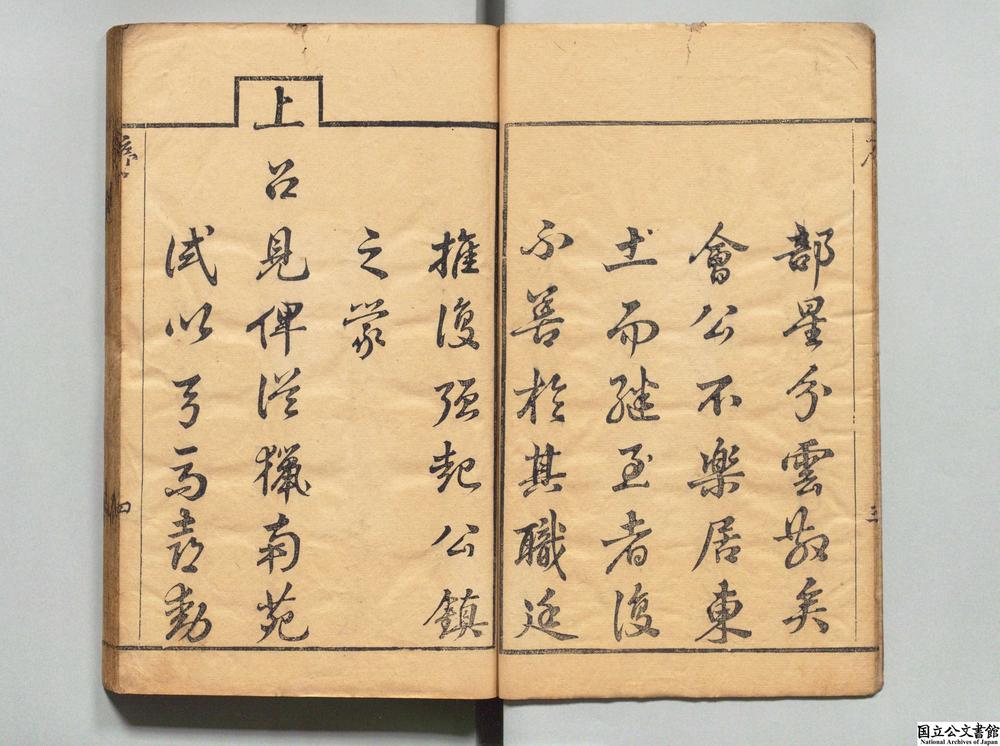 部星分雲散矣
會公不樂居東
土而繼至者復
不善於其職廷
推復強起公鎮
之蒙
上
召見俾從獵南苑
試以弓馬喜動
序
四
三
国立公文書館
National Archives of Japan